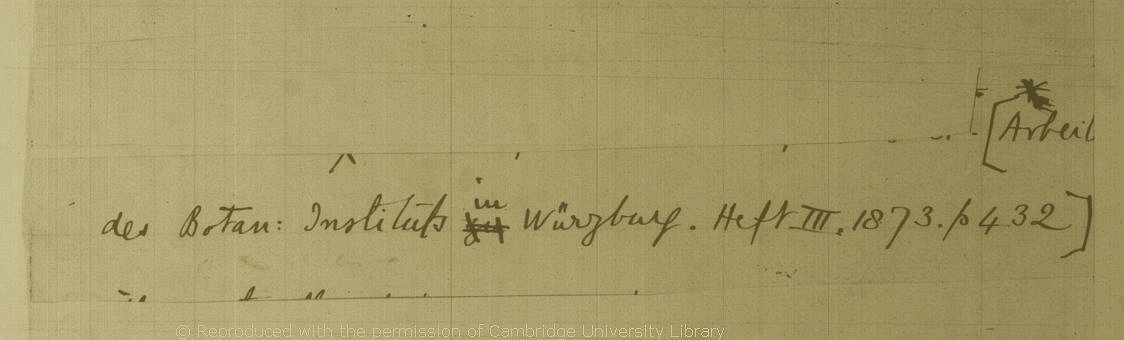 [Arbeit
des Botan: Instituts in Würzburg. Heft III. 1873. p 432]
© Reproduced with the permission of Cambridge University Library